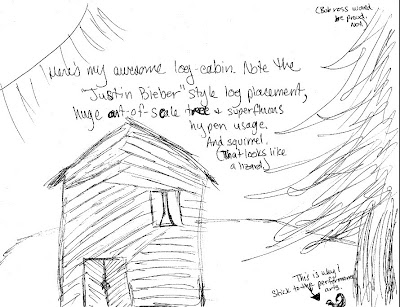 (Bob ross would
be proud.
Not)
Here's my awesome log-cabin. Note the
"Justin Bieber" style log placement,
huge out-of-scale tree & superfluous
hypen usage.
And squirrel.
(That looks like
a lizard)
This is why I
stick to the performing
arts.